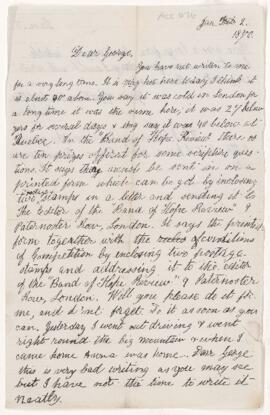 Jan. Feb 2.
1870.
Dear George,
You have not written to me
for a very long time. It is very hot here today I think it
is about 40 above. You say it was cold in London for
a long time it was the same here, it was 27 below
zero for several days & they say it was 40 below at
Quebec. In the Band of Hope Review there
are ten prizes offered for some scripture ques-
tions. It says they must be sent in on a
printed form which can be got by inclosing
two postage stamps in a letter and sending it to
The Editor of the "Band of Hope Review" 9
Paternoster Row, London. It says the printed
form together with the rules of conditions
of Competition by inclosing two postage
stamps and addressing it to the editor
of the Band of Hope Review" 9 Paternoster
Row, London. Will you please do it for
me, and don't forget to it as soon as you
can. Yesterday I went out driving & went
right round the big mountain & when I
came home Anna was home. Dear George
this is very bad writing as you may see
but I have not the time to write it
neatly.